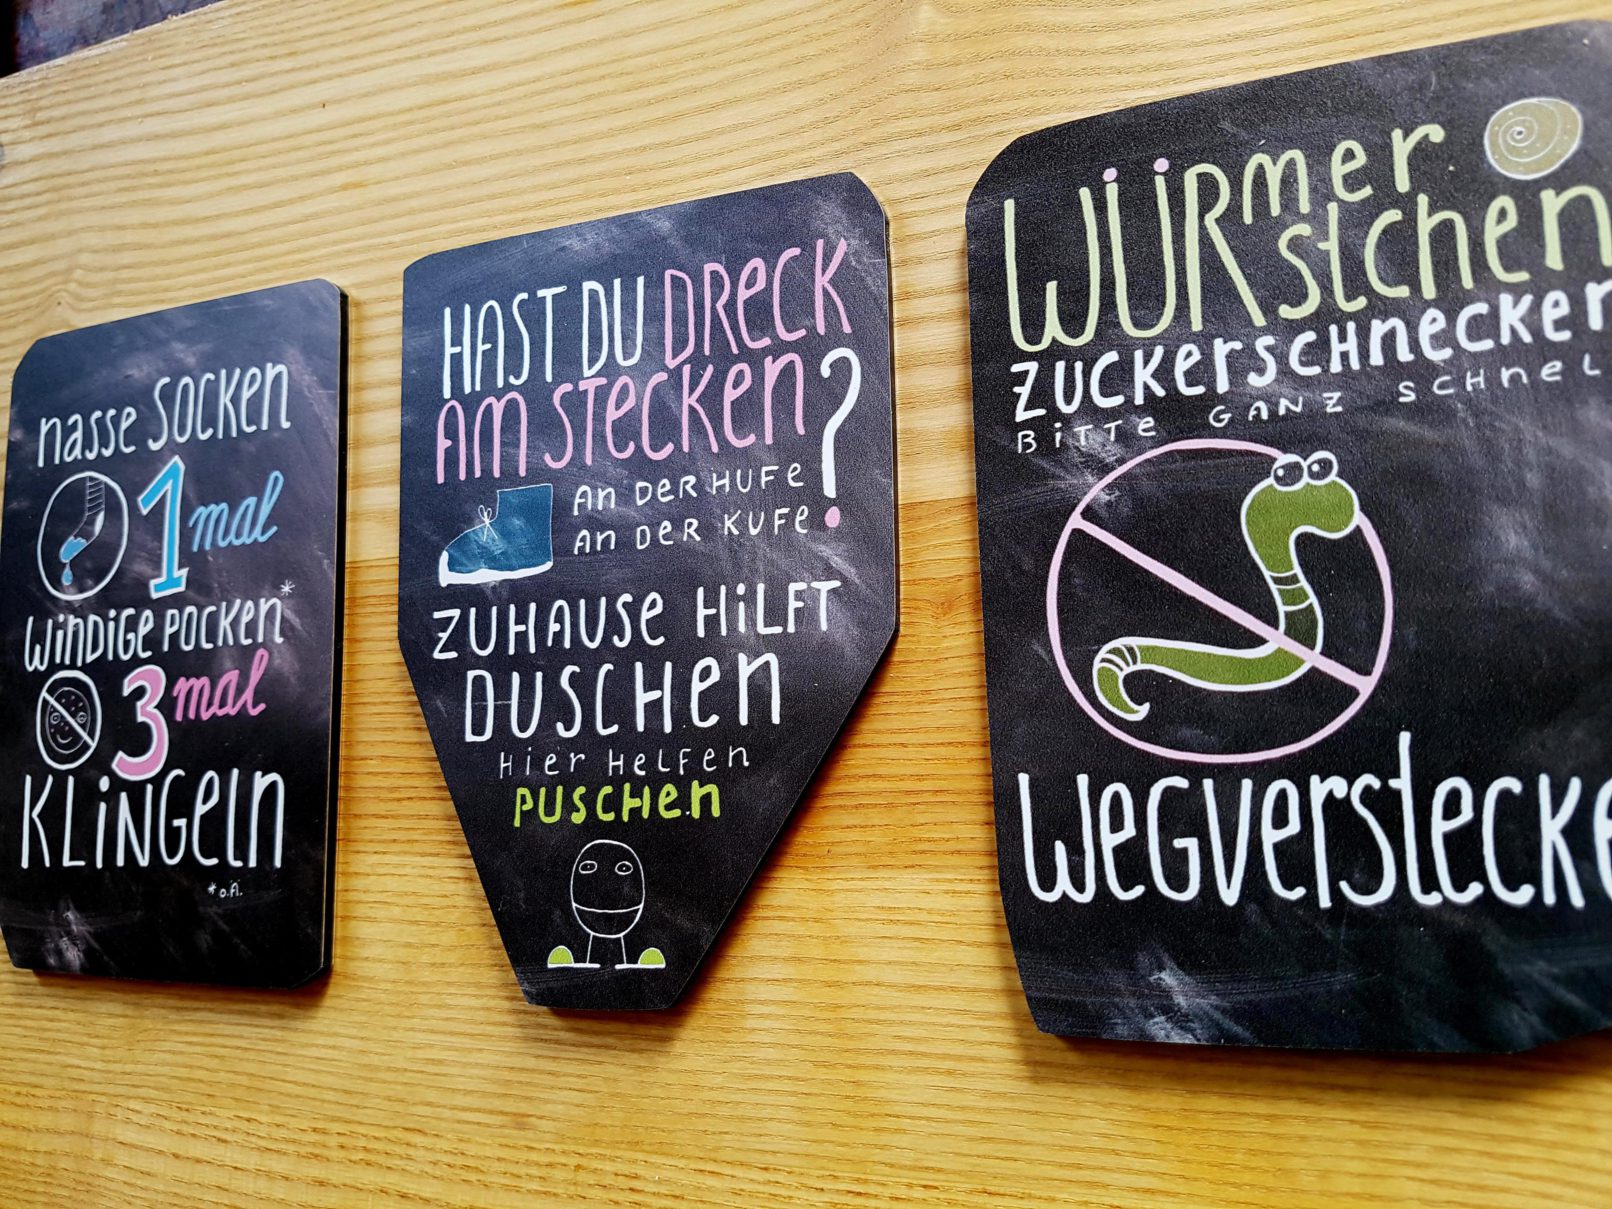 nasse SOCKEN
1 mal
WINDIGE POCKEN*
3 mal
KLINGELN
*o.Ä.
HAST DU DRECK
AM STECKEN?
AN DER HUFE
AN DER KUFE
ZUHAUSE HILFT
DUSCHEN
HIER HELFEN
PUSCHEN
WÜRmer
WÜRstchen
ZUCKERSCHNECKEN
BITTE GANZ SCHNELL
WEGVERSTECKE